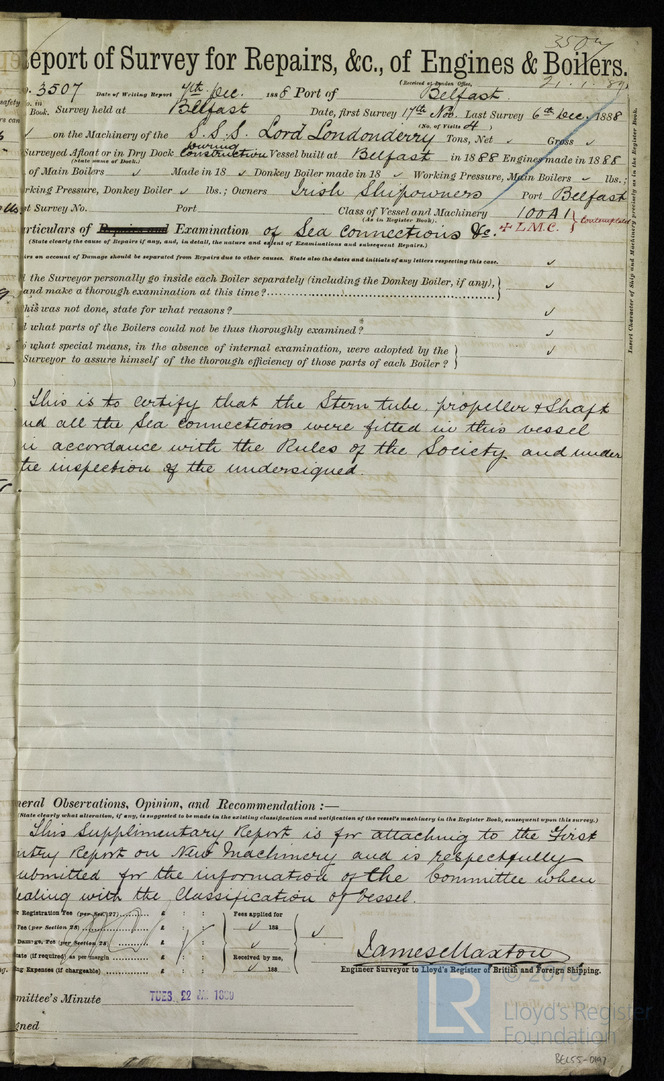 3507
Report of Survey for Repairs, &c., of Engines & Boilers.
(Received at London Office, 21.1.89
o. 3507 Date of Writing Report 7th Dec. 1888 Port of Belfast
o. in Book. Survey held at Belfast Date, first Survey 17th Nov. Last Survey 6th Dec. 1888
(No. of Visits 4)
on the Machinery of the S.S.S. Lord Londonderry Tons, Net Gross
Surveyed Afloat or in Dry Dock during Construction Vessel built at Belfast in 1888 Engines made in 1888
(State name of Dock.)
of Main Boilers Made in 18 Donkey Boiler made in 18 Working Pressure, Main Boilers lbs.;
rking Pressure, Donkey Boiler lbs.; Owners Irish Shipowners Port Belfast
st Survey No. Port Class of Vessel and Machinery 100A1
(As in Register Book) ✠ L.M.C. Contemplated
articulars of Repairs and Examination of Sea Connections &c.
(State clearly the cause of Repairs if any, and, in detail, the nature and extent of Examinations and subsequent Repairs.)
irs on account of Damage should be separated from Repairs due to other causes. State also the dates and initials of any letters respecting this case.
d the Surveyor personally go inside each Boiler separately (including the Donkey Boiler, if any),
and make a thorough examination at this time?
this was not done, state for what reasons?
d what parts of the Boilers could not be thus thoroughly examined?
what special means, in the absence of internal examination, were adopted by the
Surveyor to assure himself of the thorough efficiency of those parts of each Boiler?
Insert Character of Ship and Machinery precisely as in the Register Book.
This is to certify that the Stern tube, propeller & Shaft
nd all the Sea Connections were fitted in this vessel
in accordance with the Rules of the Society and under
the inspection of the undersigned.
neral Observations, Opinion, and Recommendation:—
(State clearly what alteration, if any, is suggested to be made in the existing classification and notification of the vessel's machinery in the Register Book, consequent upon this survey.)
This Supplimentary Report is for attaching to the First
ntry Report on New Machinery and is respectfully
ubmitted for the information of the Committee when
ealing with the Classification of Vessel.
r Registration Fee (per Sec. 27) £ : : Fees applied for
Fee (per Section 28) £ : : 188
Damage, Fee (per Section 28) £ : :
cate (if required) as per margin £ : : Received by me,
ing Expenses (if chargeable) £ : : 188
James Maxton
Engineer Surveyor to Lloyd's Register of British and Foreign Shipping.
mmittee's Minute TUES 22 JAN 1889
gned
© 2019
LR
Lloyd's Register
Foundation
BEL55-0197